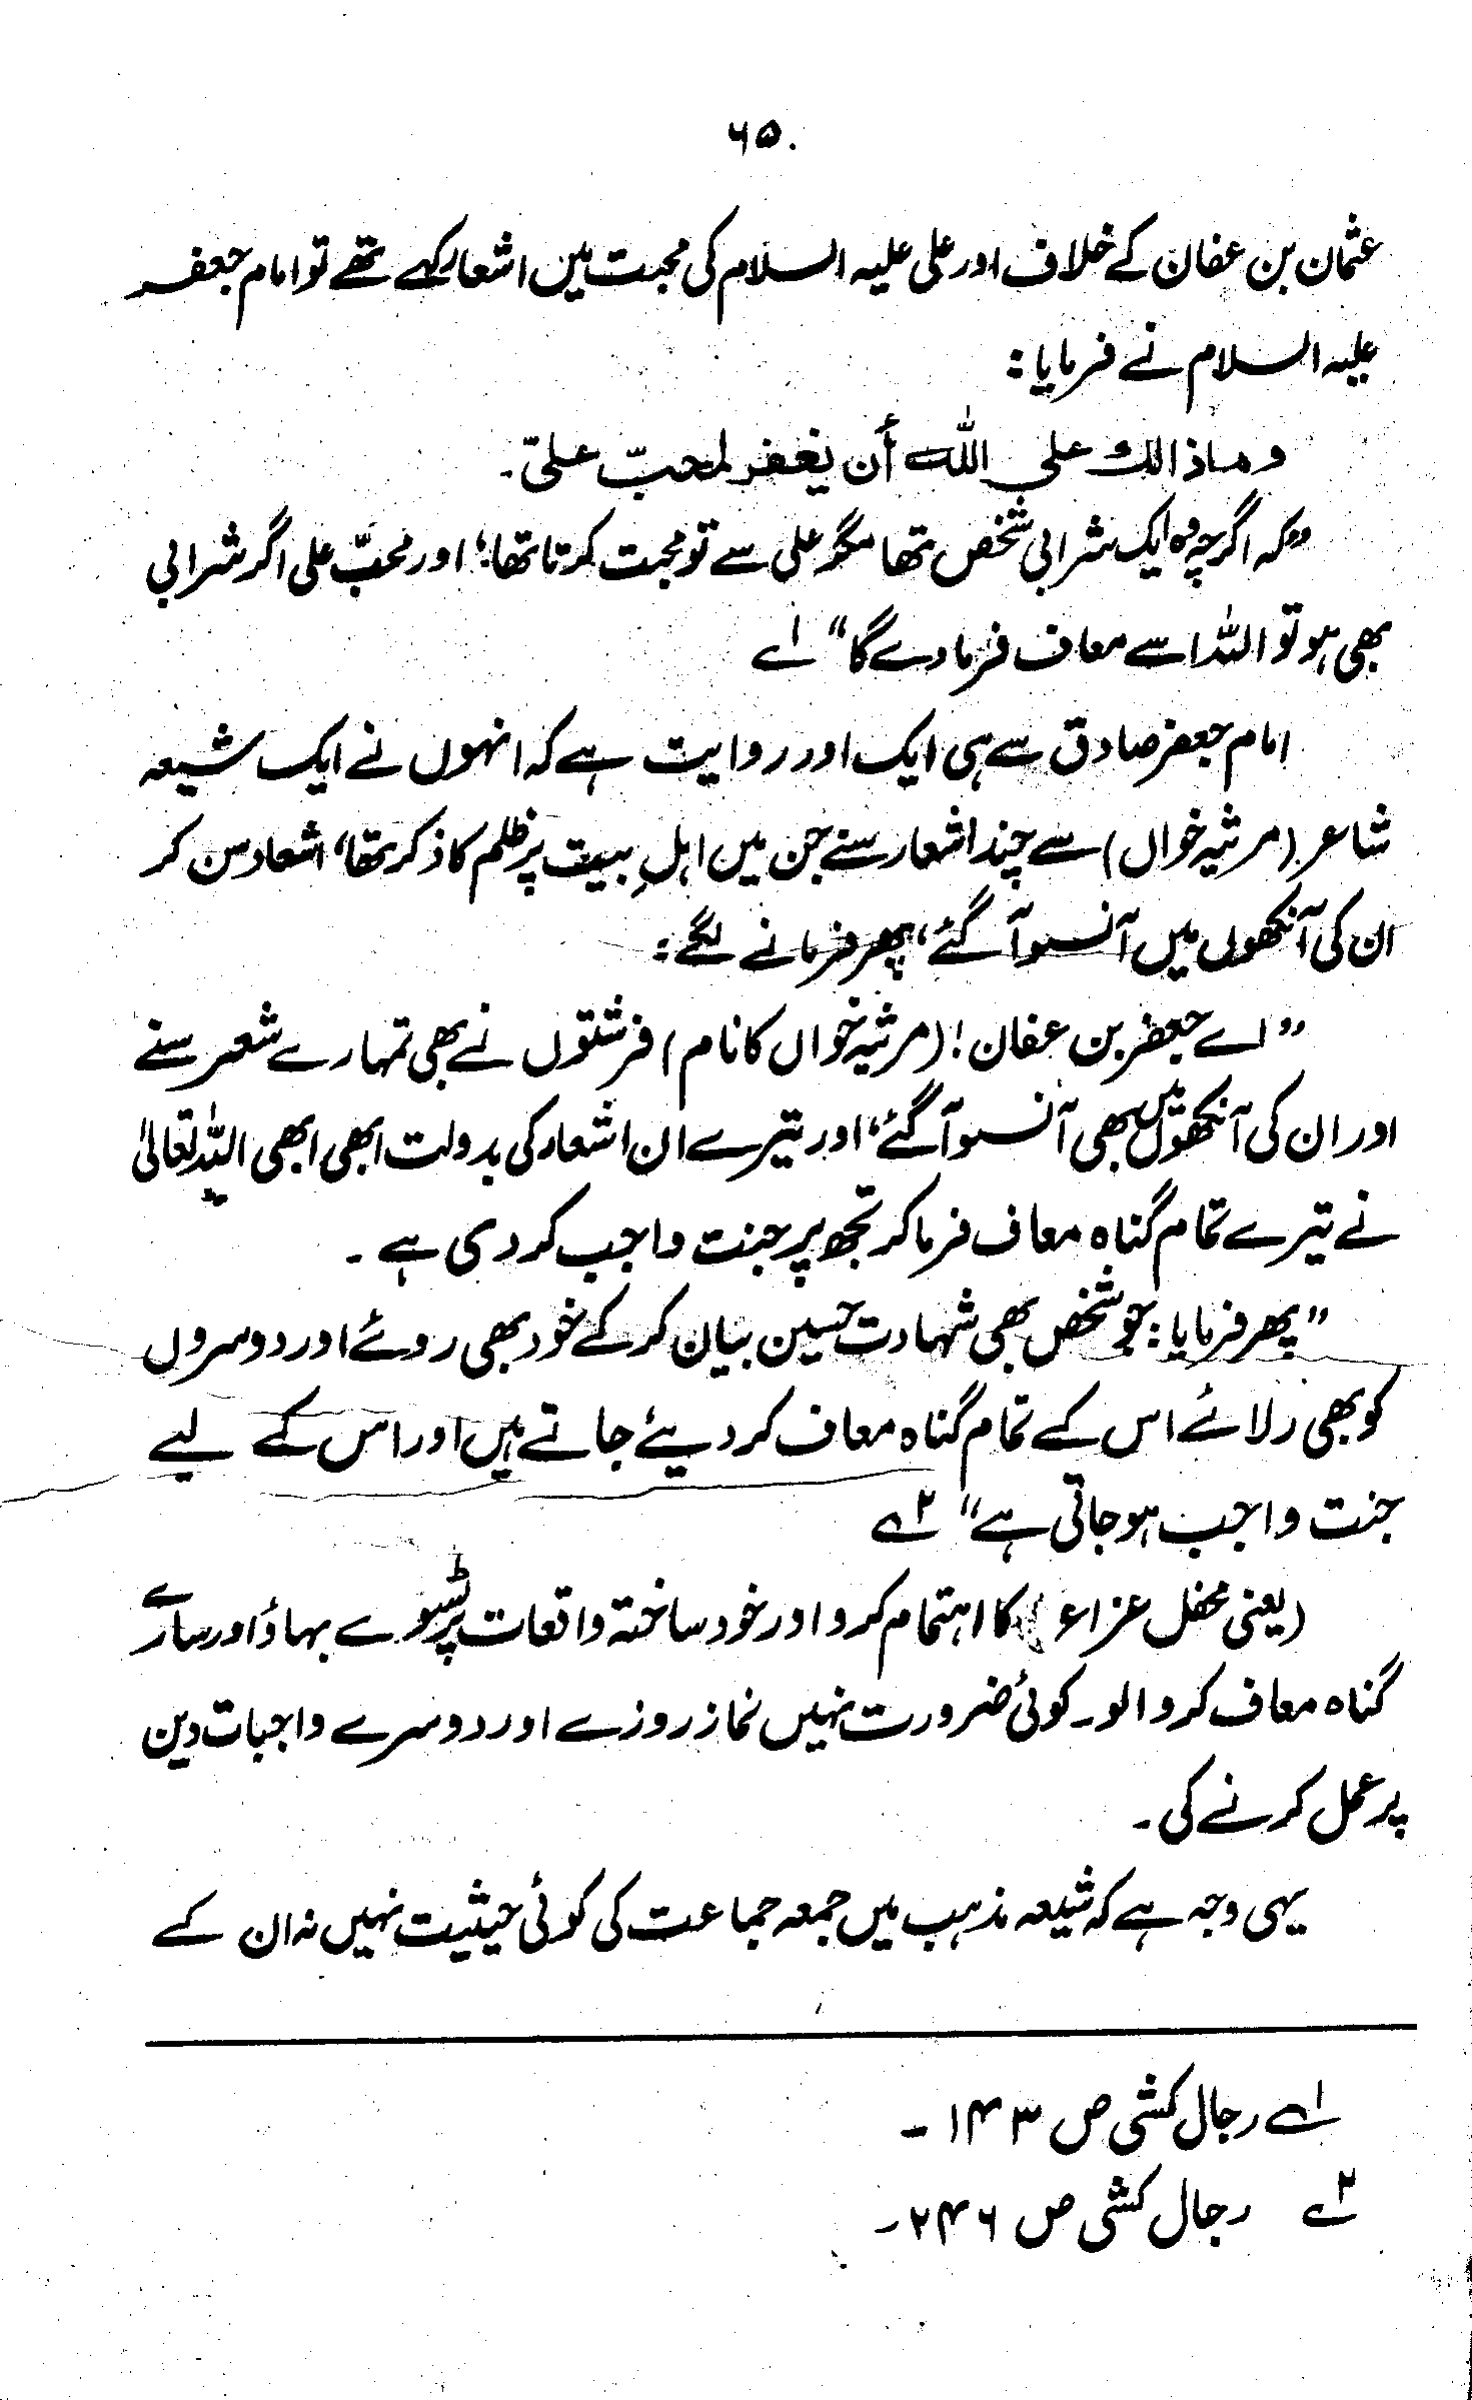 ۶۵.
عثمان بن عفان کے خلاف اور علی علیہ السلام کی محبت میں اشعار کہے تھے تو امام جعفر
علیہ السلام نے فرمایا :
وماذالك علی الله أن یغفر لمحبّ علیّ۔
”کہ اگرچہ وہ ایک شرابی شخص تھا مگر علی سے تو محبت کرتا تھا، اور محبّ علی اگر شرابی
بھی ہو تو اللہ اسے معاف فرما دے گا“ ۱ے
امام جعفر صادق سے ہی ایک اور روایت ہے کہ انہوں نے ایک شیعہ
شاعر (مرثیہ خواں) سے چند اشعار سنے جن میں اہلِ بیت پر ظلم کا ذکر تھا، اشعار سن کر
ان کی آنکھوں میں آنسو آ گئے، پھر فرمانے لگے :
”اے جعفر بن عفان ! (مرثیہ خواں کا نام) فرشتوں نے بھی تمہارے شعر سنے
اور ان کی آنکھوں میں بھی آنسو آ گئے، اور تیرے ان اشعار کی بدولت ابھی ابھی اللہ تعالیٰ
نے تیرے تمام گناہ معاف فرما کر تجھ پر جنت واجب کر دی ہے ۔
”پھر فرمایا : جو شخص بھی شہادت حسین بیان کر کے خود بھی روئے اور دوسروں
کو بھی رلائے اس کے تمام گناہ معاف کر دیئے جاتے ہیں اور اس کے لیے
جنت واجب ہو جاتی ہے“ ۲ے
(یعنی محفل عزاء) کا اہتمام کرو اور خود ساختہ واقعات پر ٹسوے بہاؤ اور سارے
گناہ معاف کروالو ۔ کوئی ضرورت نہیں نماز روزے اور دوسرے واجبات دین
پر عمل کرنے کی ۔
یہی وجہ ہے کہ شیعہ مذہب میں جمعہ جماعت کی کوئی حیثیت نہیں نہ ان کے
۱ے رجال کشی ص ۱۴۳ ۔
۲ے رجال کشی ص ۲۴۶ ۔